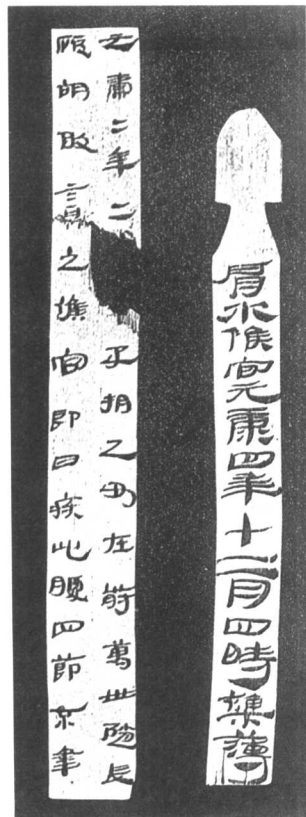 肩水候官元康四年十二月四時雜簿
元康二年二子朔乙丑左前萬世隧長
破胡敢言之候官即日疾心腹四節不舉